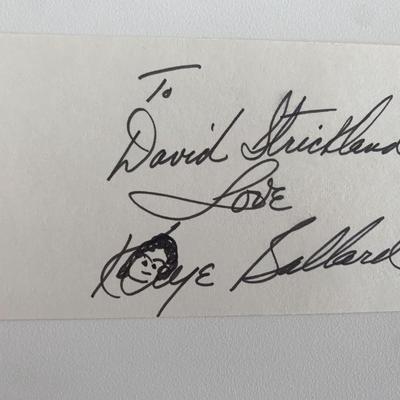 To
David Strickland
Love
Kaye Ballard